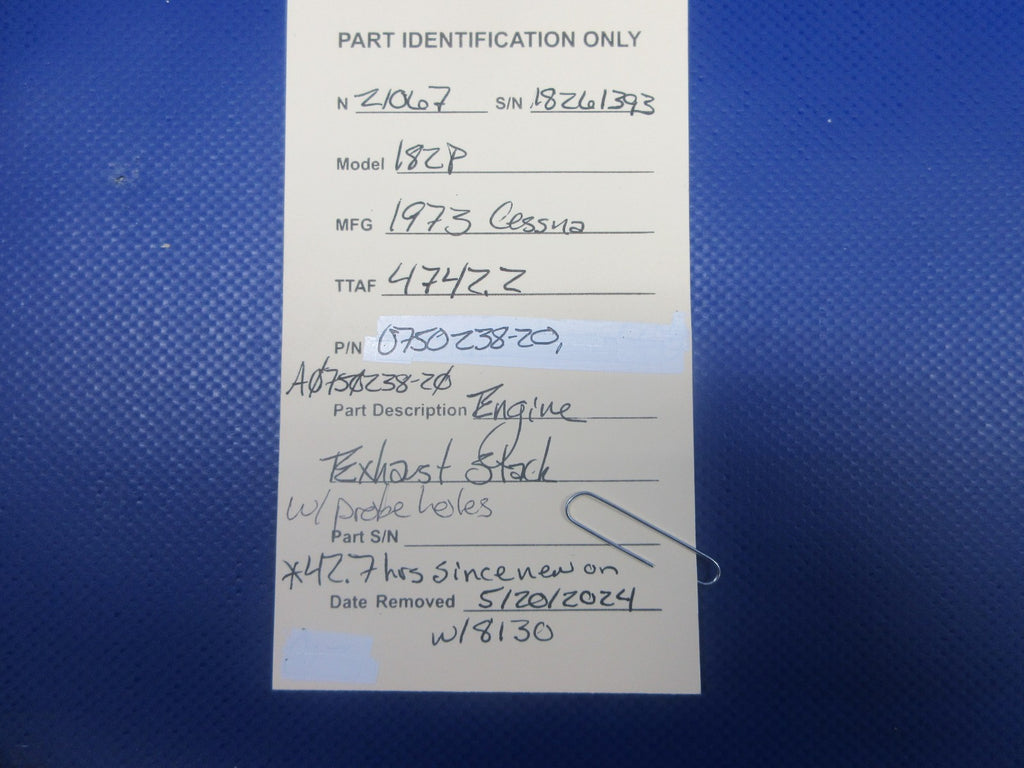 PART IDENTIFICATION ONLY
N 21067 S/N 18261393
Model 182P
MFG 1973 Cessna
TTAF 4742.2
P/N 0750238-20,
AØ75Ø238-2Ø
Part Description Engine
Exhast Stack
w/ probe holes
Part S/N
*42.7 hrs since new on
Date Removed 5/20/2024
w/8130